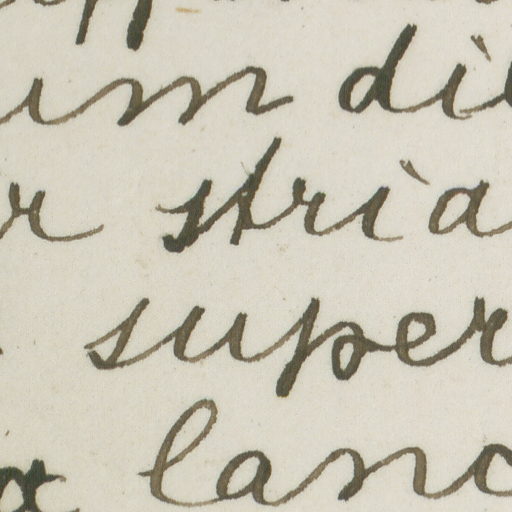 um di
r stria
super
lanc